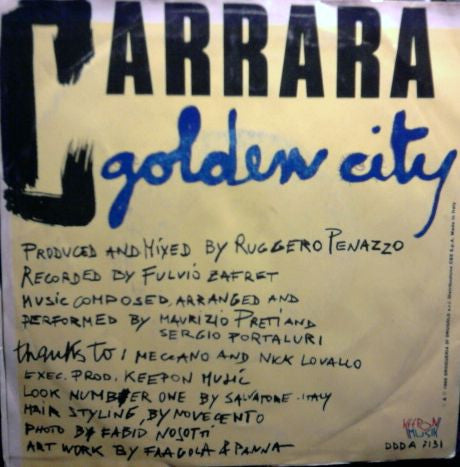 CARRARA
golden city
PRODUCED AND MIXED BY RUGGERO PENAZZO
RECORDED BY FULVIO ZAFRET
MUSIC COMPOSED, ARRANGED AND
PERFORMED BY MAURIZIO PRETI AND
SERGIO PORTALURI
thanks to: MECCANO AND NICK LOVALLO
EXEC. PROD. KEEPON MUSIC
LOOK NUMBER ONE BY SALVATORE-ITALY
HAIR STYLING, BY NOVECENTO
PHOTO BY FABIO NOSOTTI
ART WORK BY FRAGOLA & PANNA
KEEPON
MUSIK
DDD A 7131
Made in Italy